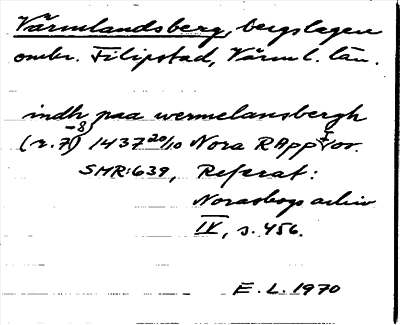 Värmlandsberg, bergslagen
omkr. Filipstad, Värml. län.
indh paa wermelansbergh
(r. 7-8) 1437 20/10 Nora RApp
SMR: 639, Referat:
Noraskogs arkiv
IV, s. 456.
E. L. 1970